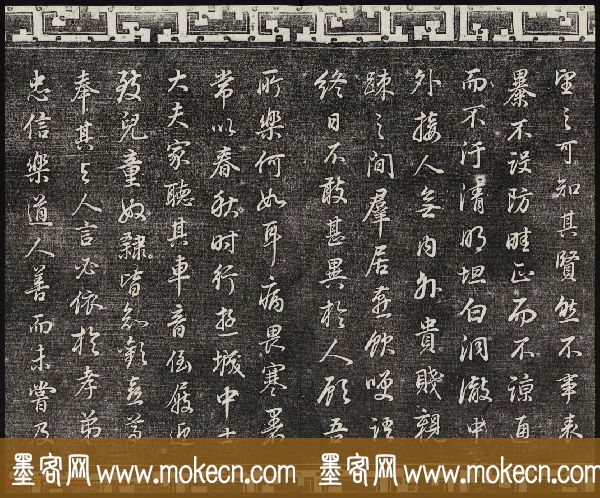 望之可知其賢然不事表
暴不設防畦正而不諒通
而不汙清明坦白洞徹中
外接人無內外貴賤親
踈之間羣居燕飲笑語
終日不敢甚異於人顧吾
所樂何如耳病畏寒暑
常以春秋時行遊城中士
大夫家聽其車音倒屣迎
致兒童奴隸皆知歡喜尊
奉其与人言必依於孝弟
忠信樂道人善而未嘗及
墨客网 www.mokecn.com 墨客网 www.mokecn.com